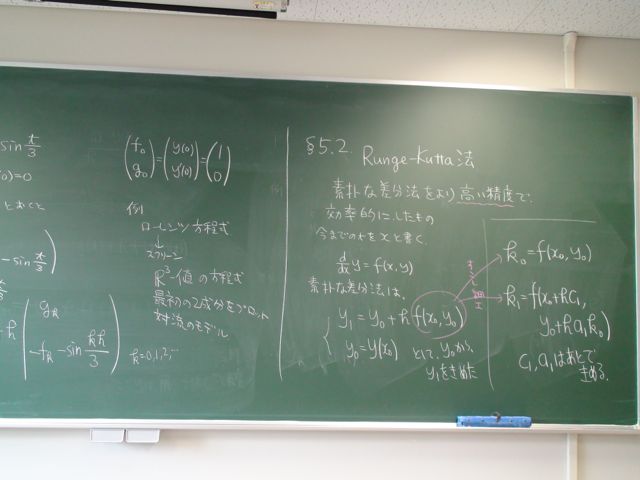 sin t/3
0)=0
とおくと
- sin(t/3)
(g_k
-f_k - sin kh/3) k=0,1,2,…
(f_0 g_0) = (y(0) y'(0)) = (1 0)
例
ローレンツ方程式
↓
スクリーン
R³-値の方程式
最初の2成分をプロット
対流のモデル
§5.2. Runge-Kutta法
素朴な差分法をより高い精度で、
効率的にしたもの
今までのtをxと書く。
d/dx y = f(x, y)
素朴な差分法は、
{ y_1 = y_0 + h f(x_0, y_0)
y_0 = y(x_0)
として、y_0から、
y_1をきめた
k_0 = f(x_0, y_0)
k_1 = f(x_0 + h c_1,
y_0 + h a_1 k_0)
c_1, a_1はあとで
きめる.